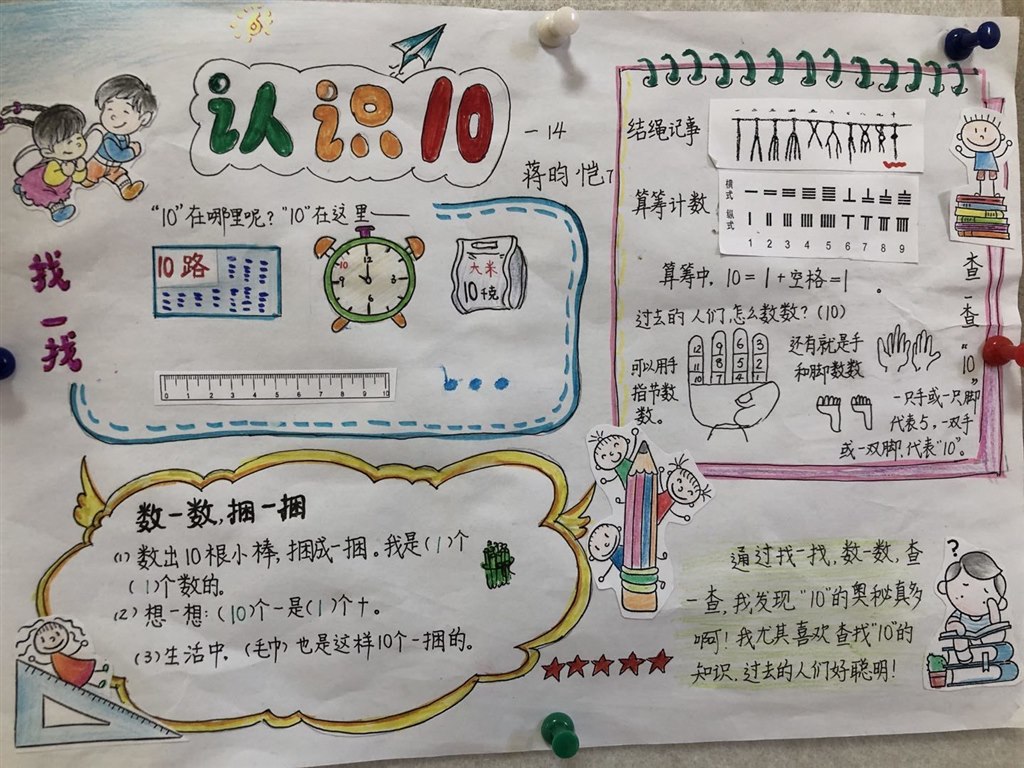 认识10
一14
蒋昀恺
找一找
“10”在哪里呢？“10”在这里——
10路
12
10
9
3
6
大米
10千克
0 1 2 3 4 5 6 7 8 9 10
数一数，捆一捆
(1) 数出10根小棒，捆成一捆。我是(1)个
(1)个数的。
(2) 想一想：(10)个一是(1)个十。
(3) 生活中，(毛巾)也是这样10个一捆的。
查一查“10”
结绳记事
一 二 三 四 五 六 七 八 九 十
算筹计数
横式
纵式
1 2 3 4 5 6 7 8 9
算筹中，10=1+空格=1 。
过去的人们怎么数数？(10)
可以用手
指节数
数。
12 9 6 3
11 8 5 2
10 7 4 1
还有就是手
和脚数数
一只手或一只脚
代表5，一双手
或一双脚，代表“10”。
通过找一找，数一数，查
一查，我发现“10”的奥秘真多
啊！我尤其喜欢查找“10”的
知识，过去的人们好聪明！
?